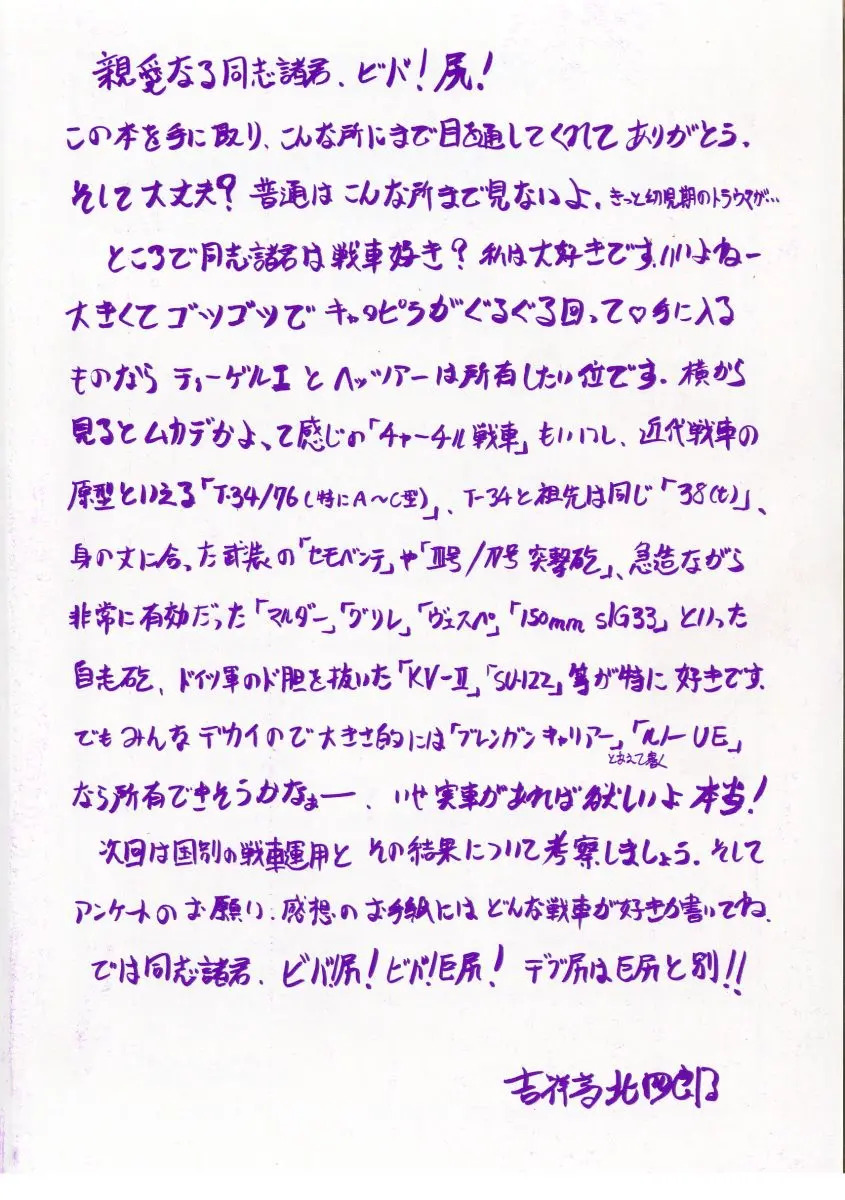 親愛なる同志諸君、ビバ!尻!
この本を手に取り、こんな所にまで目を通してくれてありがとう。
そして大丈夫?普通はこんな所まで見ないよ。きっと幼児期のトラウマが…
ところで同志諸君は戦車好き?私は大好きです。いいよねー
大きくてゴツゴツでキャタピラがぐるぐる回って♡手に入る
ものならティーゲルIとヘッツァーは所有したい位です。横から
見るとムカデかよ、って感じの「チャーチル戦車」もいいし、近代戦車の
原型といえる「T-34/76(特にA〜C型)」、T-34と祖先は同じ「38(t)」、
身の丈に合った武装の「セモベンテ」や「Ⅲ号/Ⅳ号突撃砲」、急造ながら
非常に有効だった「マルダー」「グリレ」「ヴェスペ」「150mm sIG33」といった
自走砲、ドイツ軍のド胆を抜いた「KV-Ⅱ」「SU-122」等が特に好きです。
でもみんなデカイので大きさ的には「ブレンガンキャリアー」「ルノーUE」
とあえて書く
なら所有できそうかなぁー、いせ実車があれば欲しいよ本当!
次回は国別の戦車運用とその結果について考察しましょう。そして
アンケートのお願い、感想のお手紙にはどんな戦車が好きか書いてね。
では同志諸君、ビバ!尻!ビバ!巨尻!デブ尻は巨尻と別!!
吉祥寺北四郎